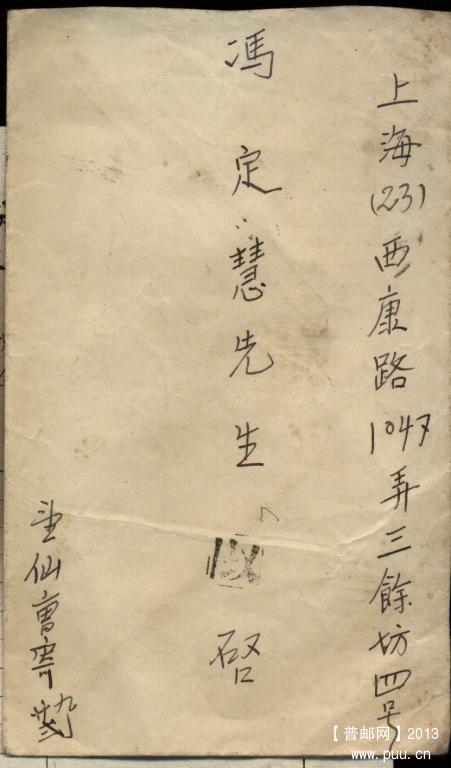 上海(23)西康路1047弄三餘坊四号
馮定慧先生 啓
仙曹寄
【普邮网】2013
www.puu.cn